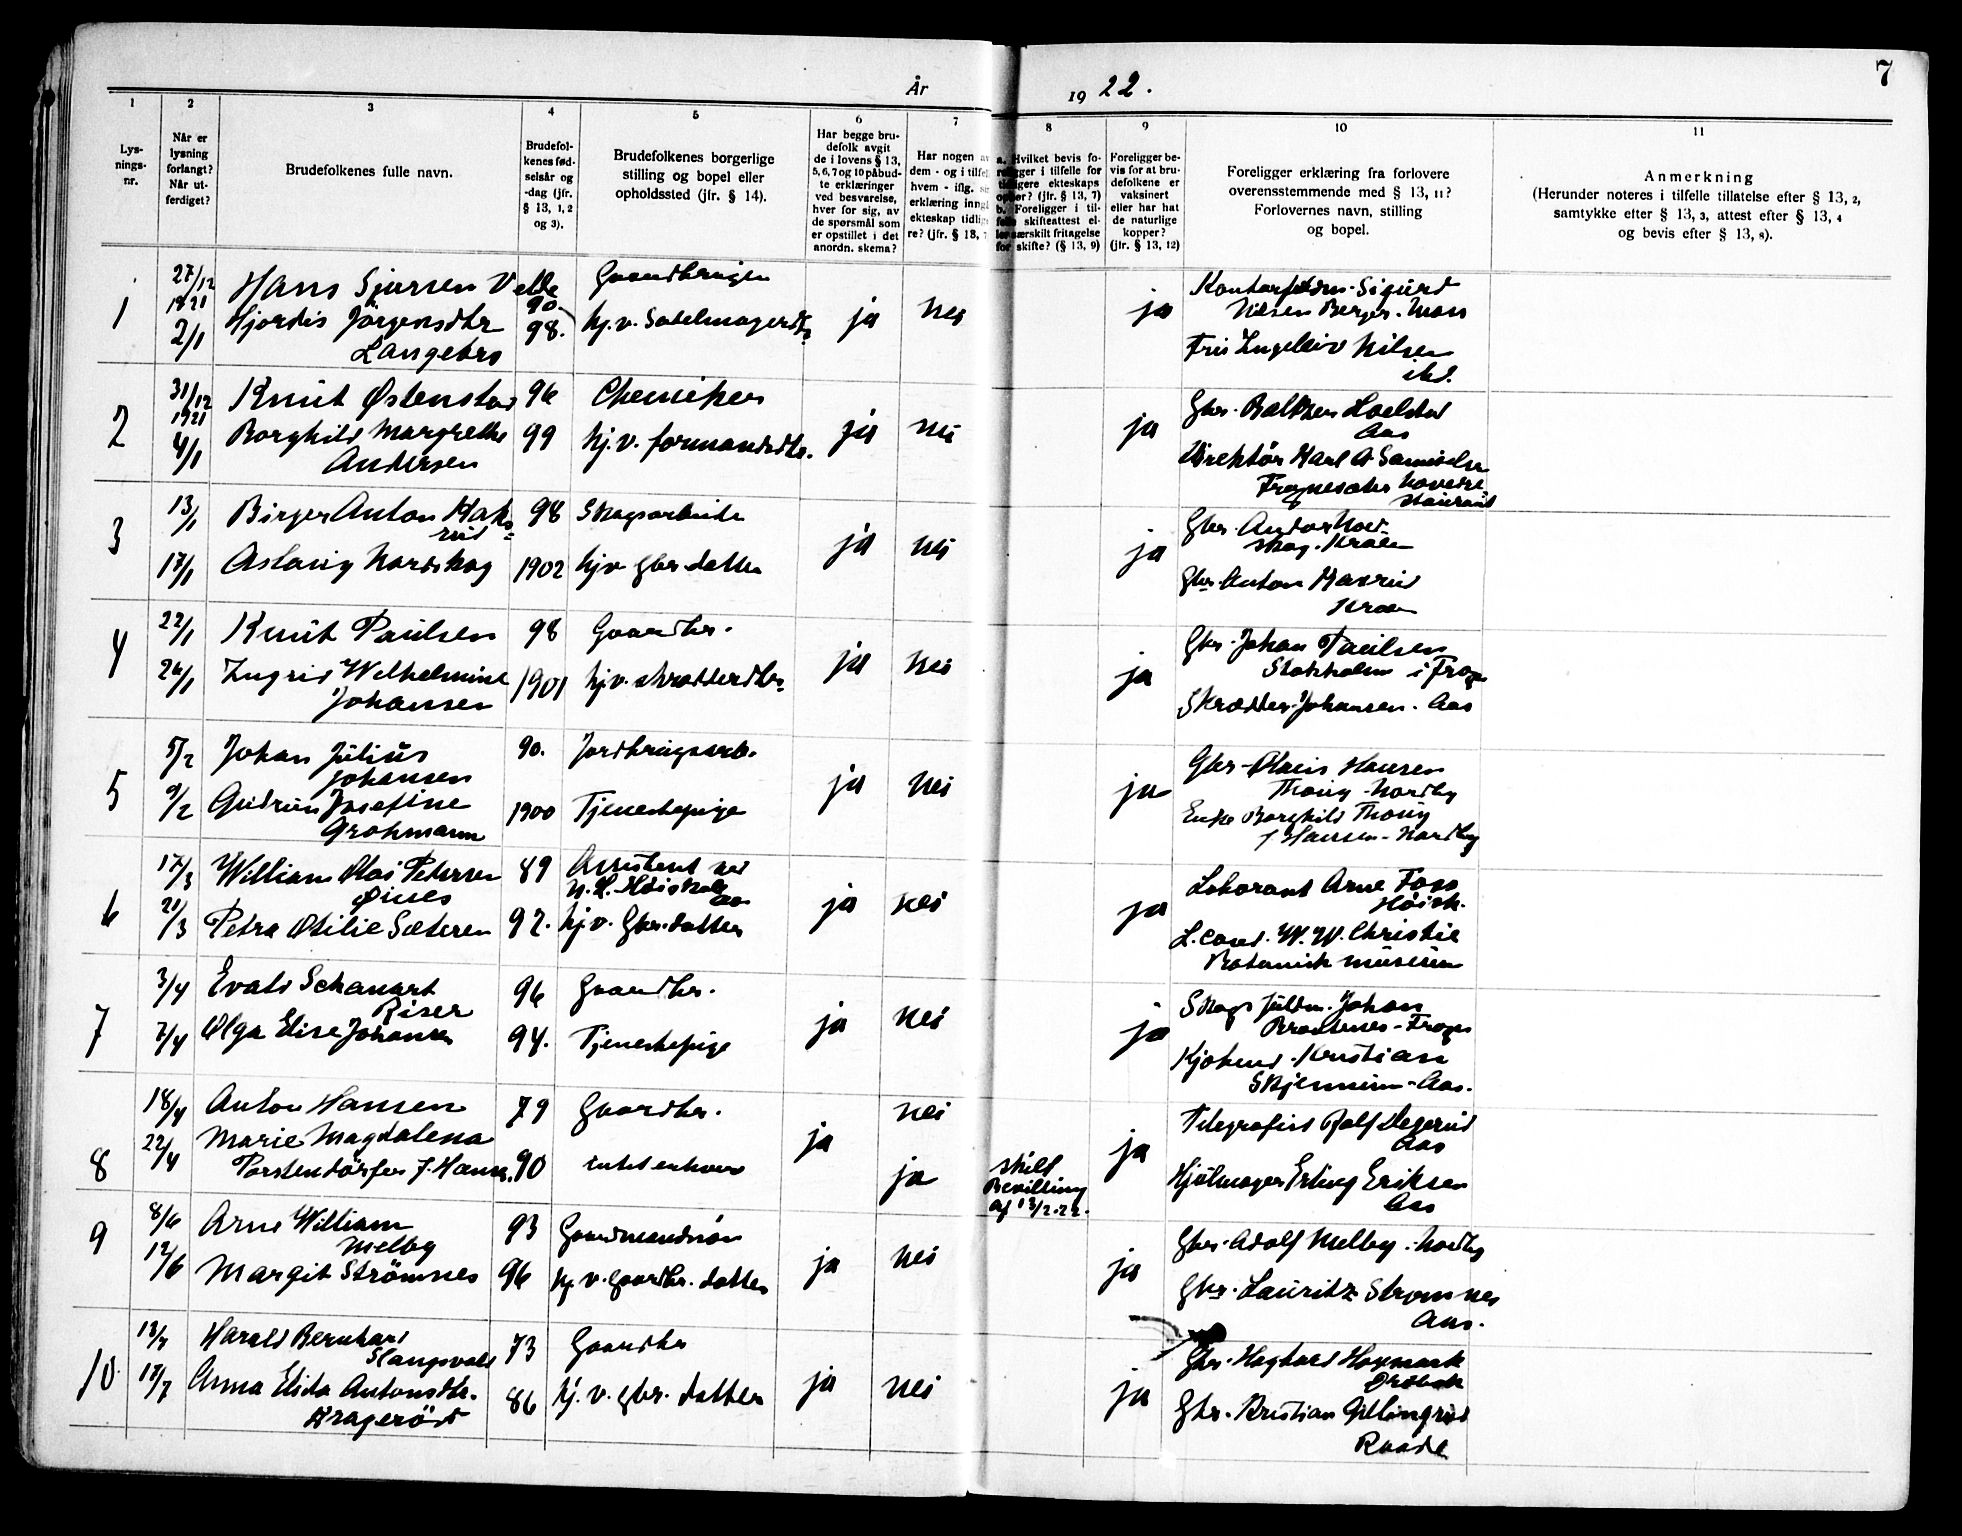 År 19 22.
7
1
2
3
4
5
6
7
8
9
10
11
Lys-
nings-
nr.
Når er
lysning
forlangt?
Når ut-
ferdiget?
Brudefolkenes fulle navn.
Brudefol-
kenes fød-
selsår og
-dag (jfr.
§ 13, 1, 2
og 3).
Brudefolkenes borgerlige
stilling og bopel eller
opholdssted (jfr. § 14).
Har begge bru-
defolk avgit
de i lovens § 13,
5, 6, 7 og 10 påbud-
te erklæringer
ved besvarelse,
hver for sig, av
de spørsmål som
er opstillet i det
anordn. skema?
Har nogen av
dem - og i tilfel
hvem - iflg. s
erklæring inng
ekteskap tidlig
re? (jfr. § 13, 7
a. Hvilket bevis fo-
religger i tilfelle for
tidligere ekteskaps
ophør? (jfr. § 13, 7)
b. Foreligger i til-
felle skifteattest el-
ler særskilt fritagelse
for skifte? (§ 13, 9)
Foreligger be-
vis for at bru-
defolkene er
vaksinert
eller har hat
de naturlige
kopper?
(jfr. § 13, 12)
Foreligger erklæring fra forlovere
overensstemmende med § 13, 11?
Forlovernes navn, stilling
og bopel.
Anmerkning
(Herunder noteres i tilfelle tillatelse efter § 13, 2,
samtykke efter § 13, 3, attest efter § 13, 4
og bevis efter § 13, 8).
1
27/12
1921
2/1
Hans Sjursen Velle
Hjördis Jörgensdtr
Langebro
90
98.
Gaardbruger
hj.v. Salelmagerdtr
ja
nei
ja
Sigurd
Nilsen Berger. Moss
Ingeleiv Nilsen
ibd.
2
31/12
1921
4/1
Knut Østenstad
Borghild Margrethe
Andersen
96
99
Chemiker
hj.v. formandsdtr.
ja
nei
ja
Gbr.
Aas
Direktör Karl A Samuelsen
3
13/1
17/1
Birger Anton Haks
rud
Aslaug Nordskog
98
1902
Skogsarbeide
hjv Gbr datter
ja
nei
ja
Gbr. Andor Nord-
skog. Kroer
Gbr. Anton Haxrud
Kroer
4
22/1
26/1
Knut Paulsen
Ingrid Wilhelmine
Johansen
98
1901
Gaardbr.
hj.v. skrædderdtr.
ja
nei
ja
Gbr. Johan Paulsen
Stokholm i Frogn
Skrædder Johansen. Aas
5
5/2
9/2
Johan Julius
Johansen
Gudrun Josefine
Grohmann
90.
1900
Jordbrugsarb.
Tjenestepige
ja
nei
ja
Gbr. Olaus Hansen
Thoug - Nordby
Enke Borghild Thoug
f Hansen - Nordby
6
17/3
21/3
William Olai Petersen
Øines
Petra Otilie Sæteren
89
92.
Assistent ved
N.L. Høiskole
Aas
hj.v. Gbr. datter
ja
nei
ja
Laborant Arne Foss
Høisk.
L.cand. W.W. Christie
Botanisk museum
7
3/4
7/4
Evald Schanart
Riser
Olga Elise Johansen
96
94.
Gaardbr.
Tjenestepige
ja
nei
ja
Skogs fuldm. Johan
Braatenes - Frogn
Kristian
Skjennum - Aas.
8
18/4
22/4
Anton Hansen
Marie Magdalena
Porstendörfer f. Hansen.
79
90
Gaardbr.
intet erhverv
ja
nei
ja
skilt
Bevilling
af 13/2.22.
ja
Telegrafist Rolf
Aas
Hjulmager Erling Eriksen
Aas
9
8/6
12/6
Arne William
Melby
Margit Strömnes
93
96
Gaardmandssön
hj.v. Gaardbr. datter
ja
nei
ja
Gbr. Adolf Melby. Nordby
Gbr. Lauritz Strömnes
Aas.
10
13/7
17/7
Harald Bernhard
Slangsvold
Anna Elida Antonsdtr.
Drageröd
73
86
Gaardbr
hj.v. gbr. datter
ja
nei
ja
Gbr. Hagbard Haxmark
Drøbak
Gbr. Kristian Gillingrud
Raade